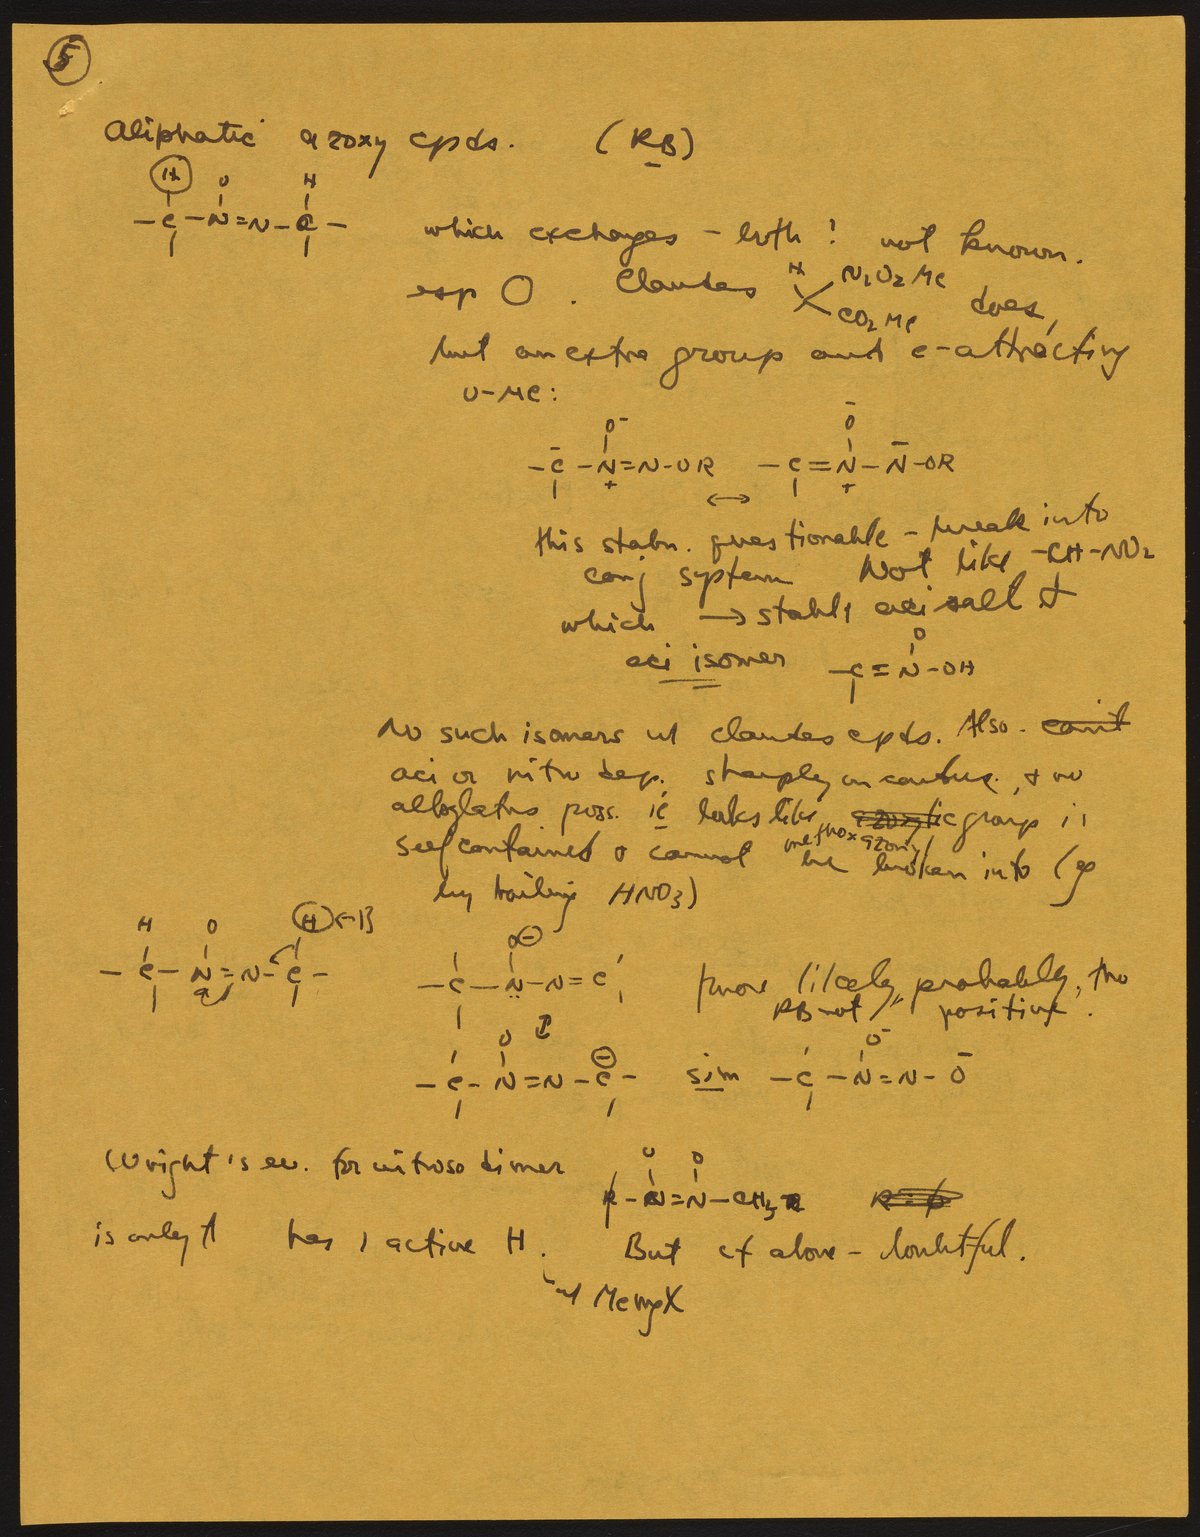 5
Aliphatic azoxy cpds. (RB)
H O H
-C-N=N-C- which exchanges - both! not known.
esp O. Claudes H N2O2Me
CO2Me does,
but an extra group and e-attracting
O-Me:
O- O-
-C-N=N-OR -C=N-N-OR
+ ↔ +
this stabn. questionable - break into
conj system Not like -CH-NO2
which → stable aci salt &
aci isomer -C=N-OH
O
No such isomers w/ claudes cpds. Also - can't
aci or nitro dep. sharply on & no
poss. ie looks like azoxy group is
methoxazonyl
self contained & cannot be broken into (eg
by boiling HNO3)
H O H ←B
-C-N=N-C- -C-N-N=C more likely, probably, tho
RB not positive.
O ↕ O-
-C-N=N-C- sim -C-N=N-O
Wright's ev. for nitroso dimer O O
R-N=N-CH2R
is only it has 1 active H. But cf above - doubtful.
w/ MemgX